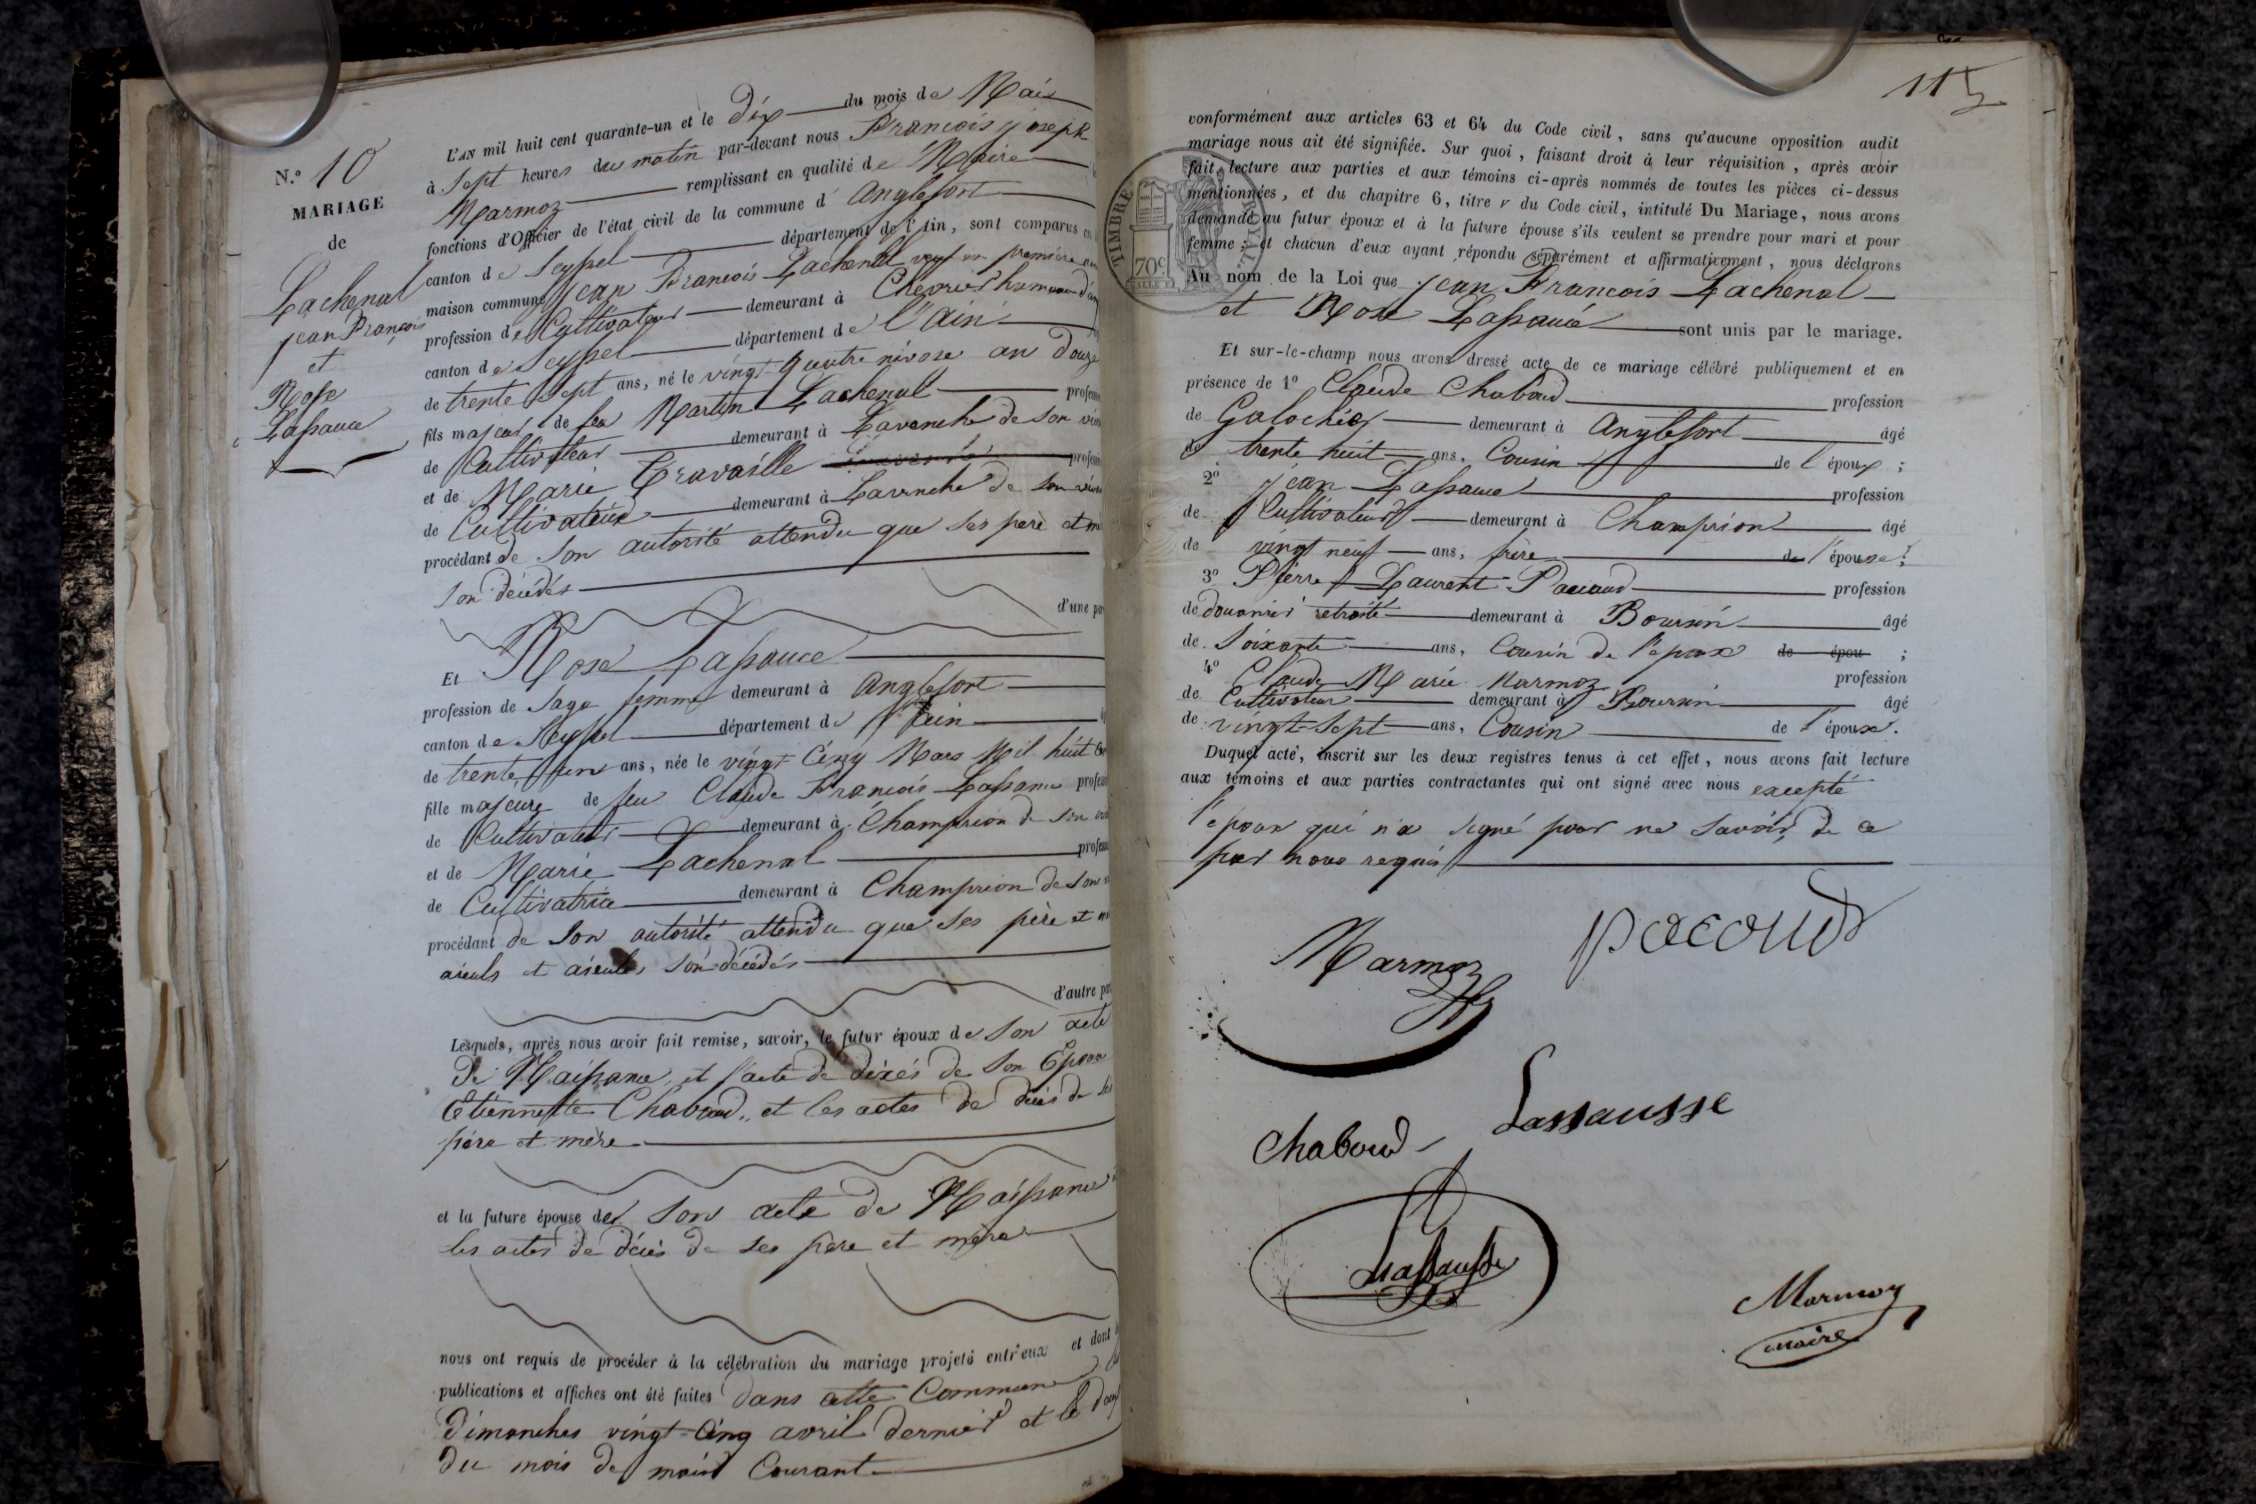 N.º 10
MARIAGE
de
Lachenal
jean François
et
Rose
Lassauce
L'AN mil huit cent quarante-un et le dix du mois de Mai
à sept heures du matin par-devant nous François joseph
Marmoz remplissant en qualité de Maire
fonctions d'Officier de l'état civil de la commune d' anglefort
canton de Seyssel département de l'Ain, sont comparus en
maison commune jean François Lachenal veuf en première
profession de Cultivateur demeurant à Chevrier hameau
canton de Seyssel département de l'Ain
de trente sept ans, né le vingt quatre nivose an douze
fils majeur de feu Martin Lachenal
de Cultivateur demeurant à Lavanche de son
et de Marie Travaille
de Cultivatrice demeurant à Lavanche de son
procédant de son autorité attendu que ses père et
son décédés
d'une
Et Rose Lassauce
profession de sage femme demeurant à anglefort
canton de Seyssel département de l'ain
de trente un ans, née le vingt Cinq Mars Mil huit
fille majeure de feu Claude François Lassauce
de Cultivateur demeurant à Champrion de son
et de Marie Lachenal
de Cultivatrice demeurant à Champrion de son
procédant de son autorité attendu que ses père et
aieuls et aieules son décédés
d'autre
Lesquels, après nous avoir fait remise, savoir, le futur époux de son acte
de Naissance, et l'acte de décés de son Epouse
Etiennette Chaboud, et les actes de décés de
père et mère
et la future épouse de son acte de Naissance
les actes de décés de ses père et mère
nous ont requis de procéder à la célébration du mariage projeté entr'eux et dont
publications et affiches ont été faites dans cette Commune
dimanches vingt-Cinq avril dernier et le
du mois de mai Courant
115
conformément aux articles 63 et 64 du Code civil, sans qu'aucune opposition audit
mariage nous ait été signifiée. Sur quoi, faisant droit à leur réquisition, après avoir
fait lecture aux parties et aux témoins ci-après nommés de toutes les pièces ci-dessus
mentionnées, et du chapitre 6, titre v du Code civil, intitulé Du Mariage, nous avons
demandé au futur époux et à la future épouse s'ils veulent se prendre pour mari et pour
femme; et chacun d'eux ayant répondu séparément et affirmativement, nous déclarons
Au nom de la Loi que jean François Lachenal
et Rose Lassauce sont unis par le mariage.
TIMBRE ROYAL
70c
Et sur-le-champ nous avons dressé acte de ce mariage célébré publiquement et en
présence de 1º Claude Chaboud profession
de Galochier demeurant à anglefort âgé
de trente huit ans, Cousin de l'époux;
2º jean Lassauce profession
de Cultivateur demeurant à Champrion âgé
de vingt neuf ans, frère de l'épouse;
3º Pierre Laurent Pacoud profession
de douanier retraité demeurant à Boursin âgé
de Soixante ans, Cousin de l'epoux de épou;
4º Claude Marie Marmoz profession
de Cultivateur demeurant à Boursin âgé
de vingt-Sept ans, Cousin de l'époux.
Duquel acte, inscrit sur les deux registres tenus à cet effet, nous avons fait lecture
aux témoins et aux parties contractantes qui ont signé avec nous excepté
l'epoux qui n'a signé pour ne savoir, de ce
par nous requis
Marmoz
pacoud
Chaboud
Lassausse
Lassausse
Marmoz
maire